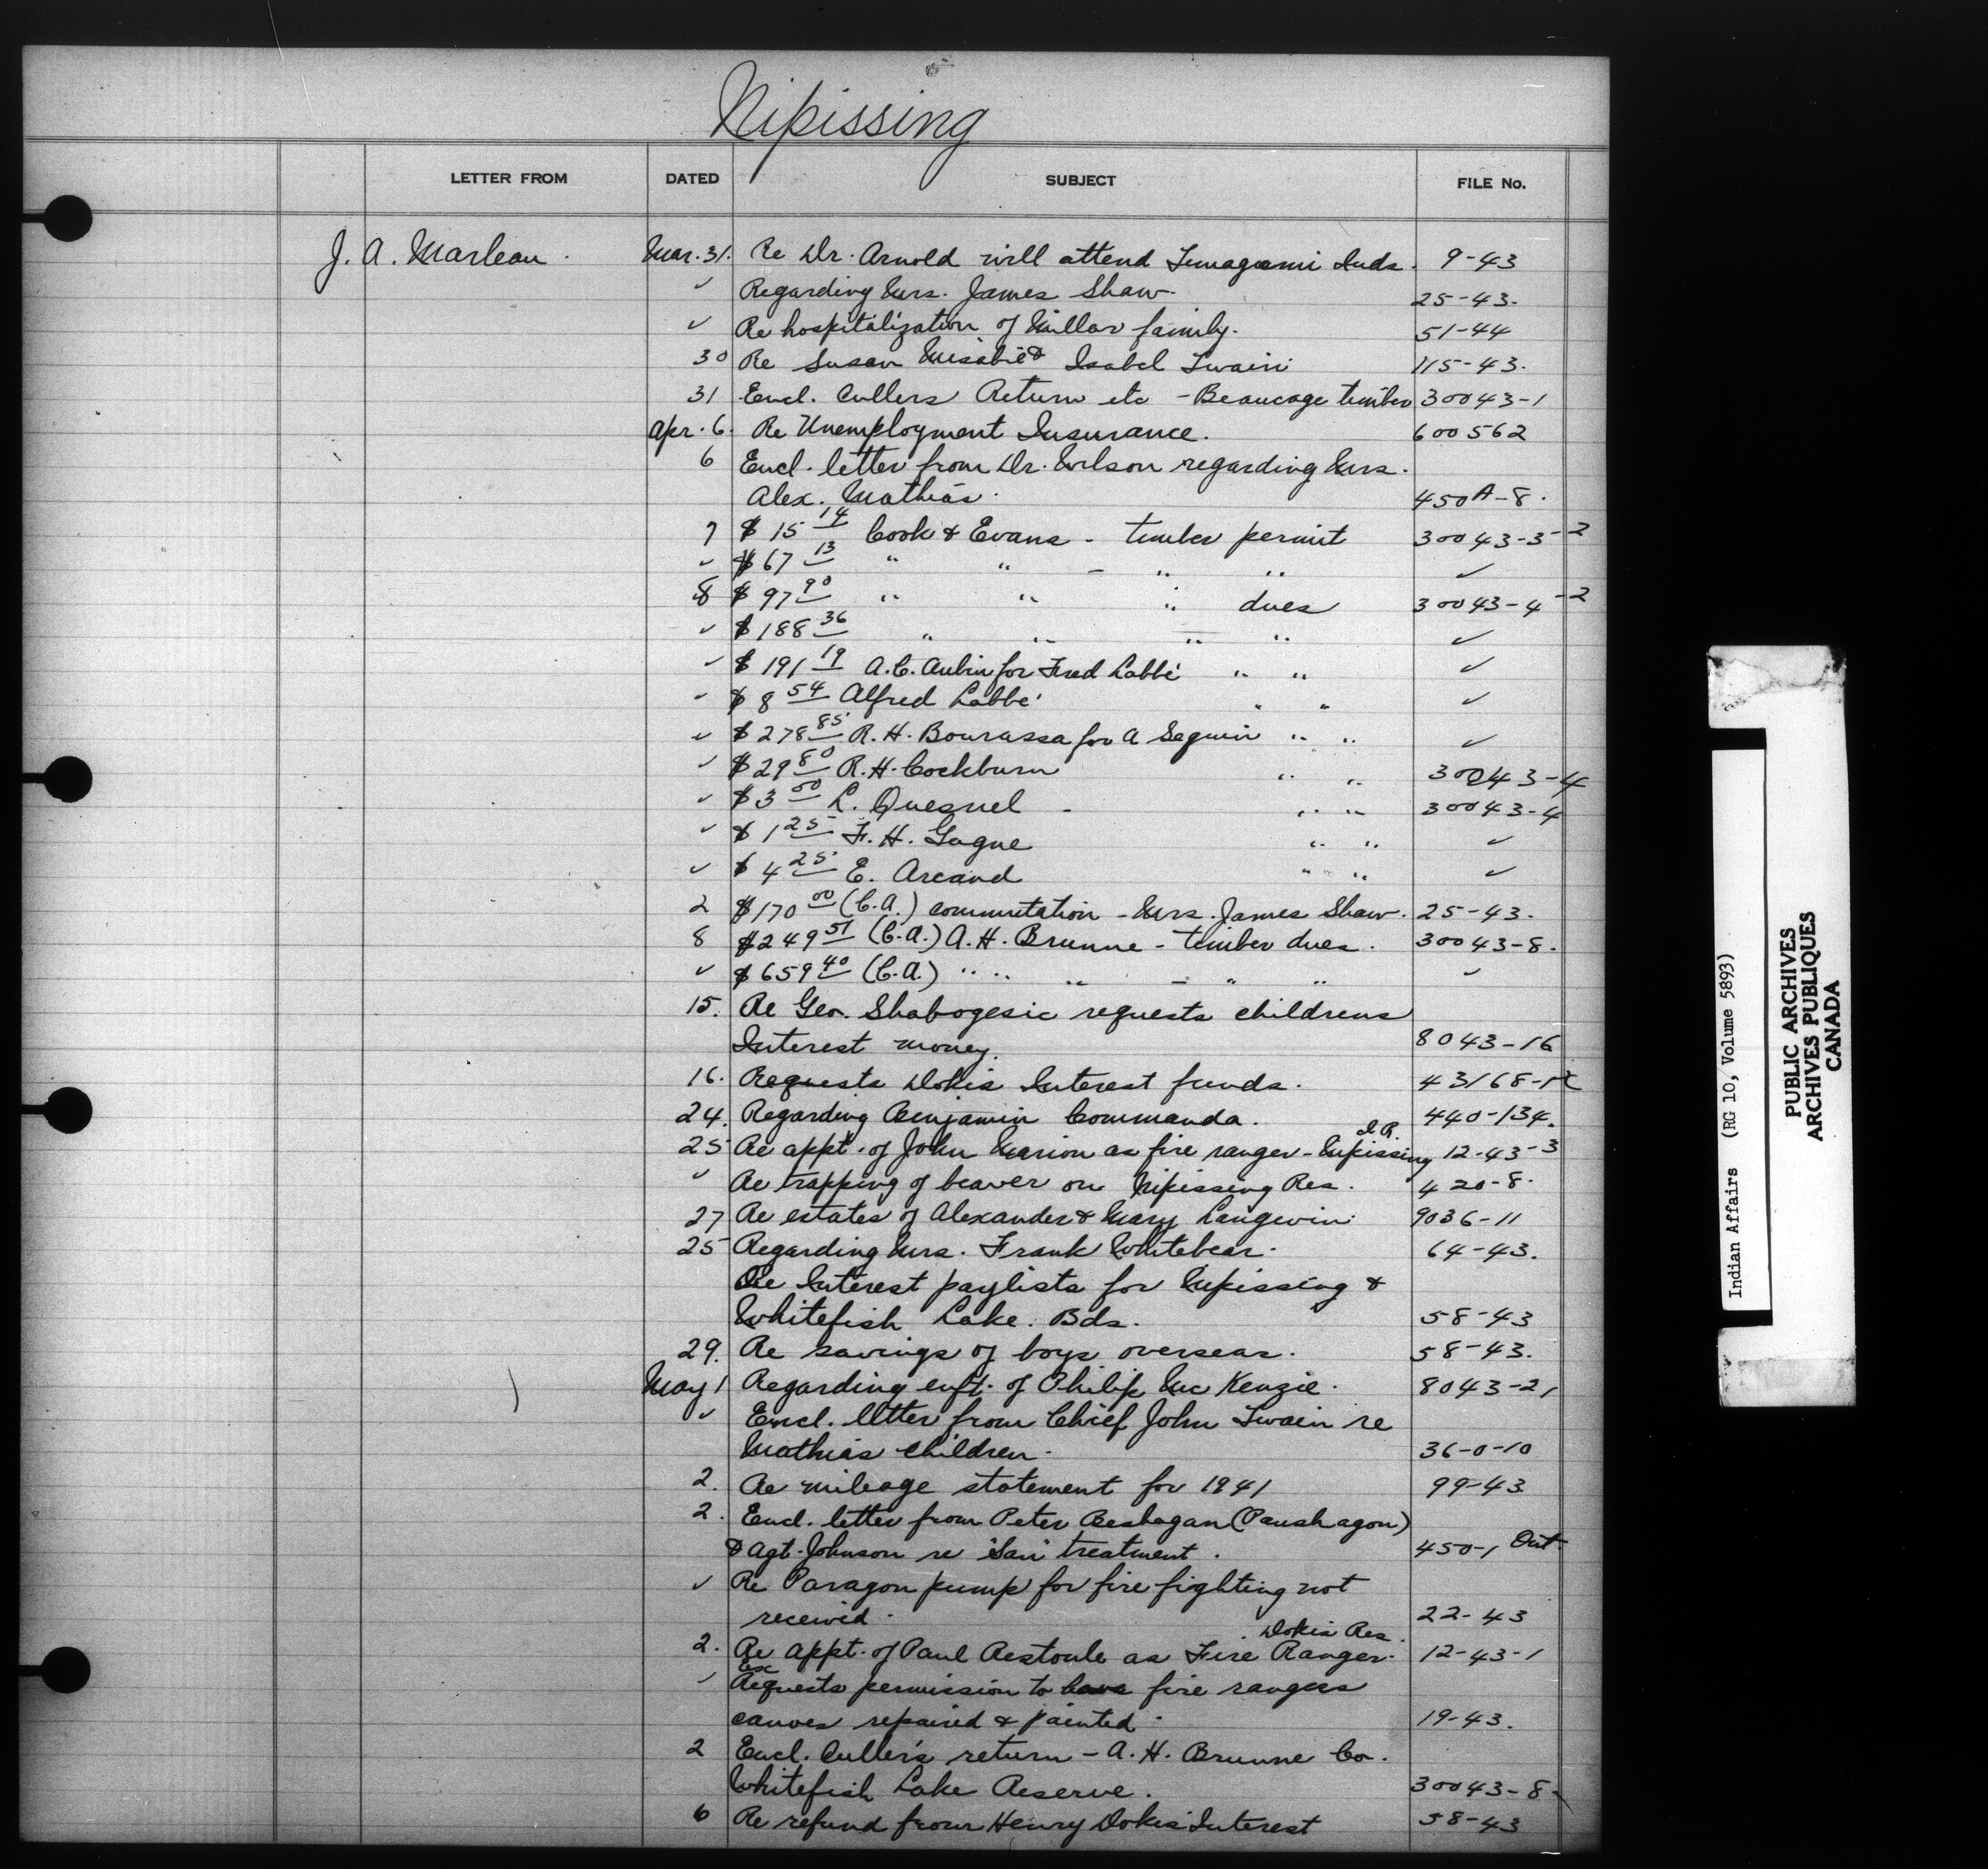 Nipissing
LETTER FROM DATED SUBJECT FILE No.
J. A. Marleau. Mar. 31. Re Dr. Arnold will attend Temagami Inds. 9-43
✓ Regarding Mrs. James Shaw. 25-43.
✓ Re hospitalization of Millar family. 51-44
30 Re Susan Misabi & Isabel Twain 115-43.
31 Encl. Cullers Return etc - Beaucage timber 30043-1
Apr. 6. Re Unemployment Insurance. 600562
6 Encl. letter from Dr. Wilson regarding Mrs.
Alex. Mathias. 450A-8.
7 $15 14 Cook & Evans - timber permit 30043-3-2
✓ $67 13 " " - " " ✓
8 $97 90 " " " dues 30043-4-2
✓ $188 36 " " " " ✓
✓ $191 19 A.C. Aubin for Fred Labbé " " ✓
✓ $8 54 Alfred Labbé " " ✓
✓ $278 85 R.H. Bourassa for A Seguin " " ✓
✓ $29 80 R.H. Cockburn " " 30043-4
✓ $3 00 L. Quesnel - " " 30043-4
✓ $1 25 F.H. Gagne " " ✓
✓ $4 25 E. Arcand " " ✓
2 $170 00 (C.A.) commutation - Mrs. James Shaw. 25-43.
8 $249 51 (C.A.) A.H. Brunne - timber dues. 30043-8.
✓ $659 40 (C.A.) " " " - " " ✓
15. Re Geo. Shabogesic requests childrens
Interest money. 8043-16
16. Requests Dokis Interest funds. 43168-12
24. Regarding Benjamin Commanda. 440-134.
I.R.
25 Re appt. of John Marion as fire ranger - Nipissing 12-43-3
✓ Re trapping of beaver on Nipissing Res. 420-8.
27 Re estates of Alexander & Mary Langevin. 9036-11
25 Regarding Mrs. Frank Whitebear. 64-43.
Re Interest paylists for Nipissing &
Whitefish Lake. Bds. 58-43
29. Re savings of boys overseas. 58-43.
May 1 Regarding enft. of Philip McKenzie. 8043-21
✓ Encl. letter from Chief John Twain re
Mathias children. 36-0-10
2. Re mileage statement for 1941 99-43
2. Encl. letter from Peter Beshagan (Paushagon)
& Agt. Johnson re 'San' treatment. 450-1 Ont.
✓ Re Paragon pump for fire fighting not
received. 22-43
Dokis Res.
2. Re appt. of Paul Restoule as Fire Ranger. 12-43-1
✓ Requests permission to have fire rangers
canoes repaired & painted. 19-43.
2 Encl. Culler's return - A.H. Brunne Co.
Whitefish Lake Reserve. 30043-8
6 Re refund from Henry Dokis Interest 58-43
Indian Affairs (RG 10, Volume 5893)
PUBLIC ARCHIVES
ARCHIVES PUBLIQUES
CANADA